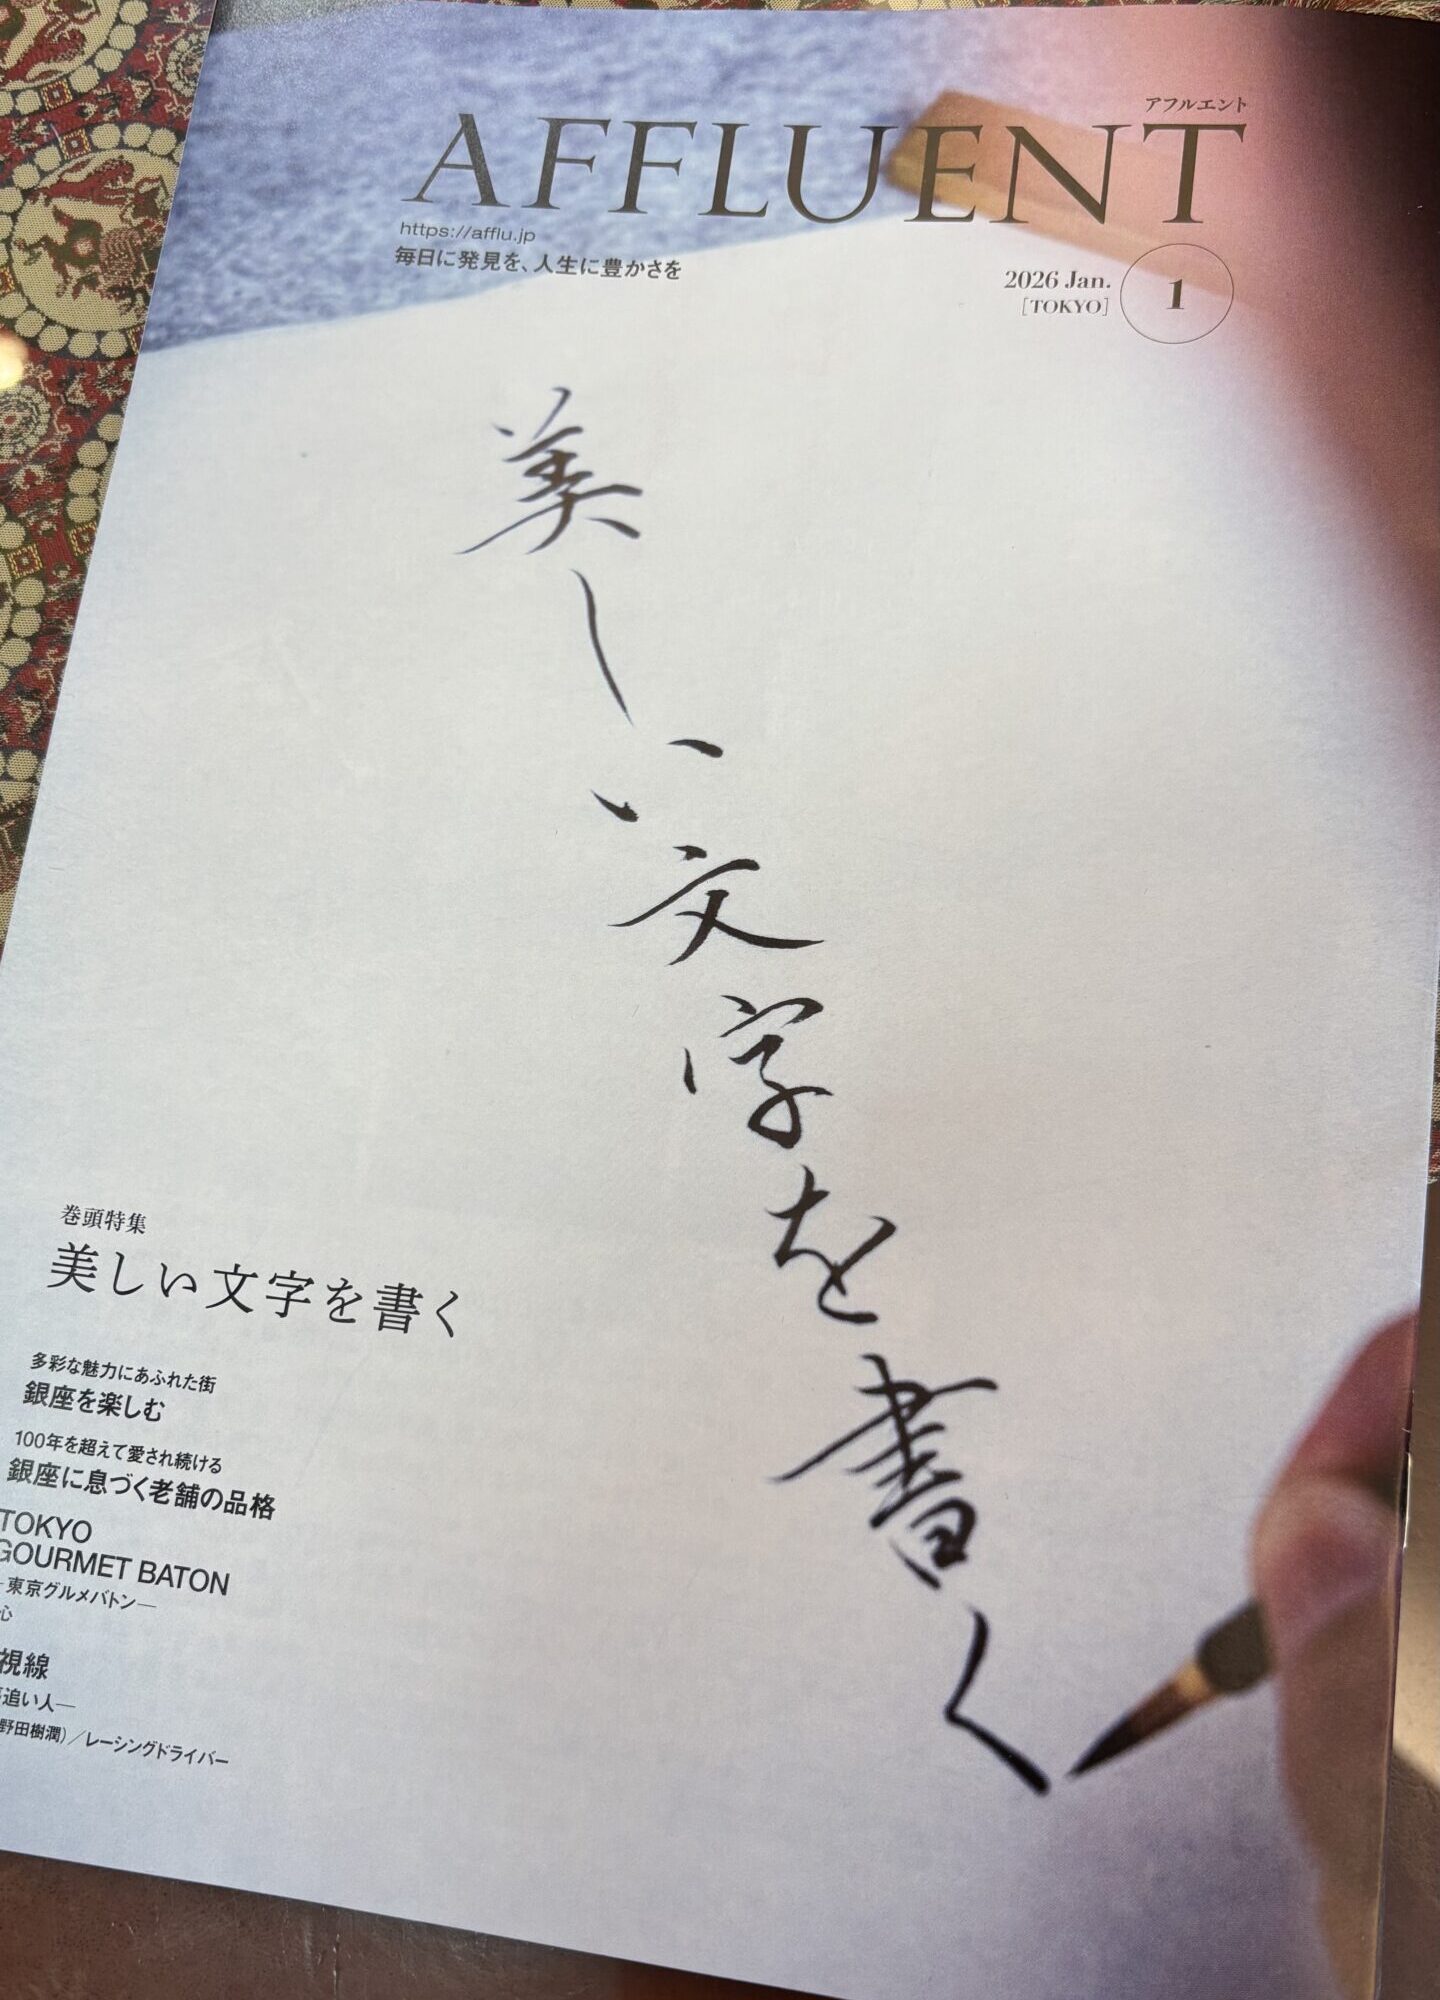 アフルエント
AFFLUENT
https://afflu.jp
毎日に発見を、人生に豊かさを
2026 Jan.
[TOKYO]
1
美しい文字を書く
巻頭特集
美しい文字を書く
多彩な魅力にあふれた街
銀座を楽しむ
100年を超えて愛され続ける
銀座に息づく老舗の品格
TOKYO
GOURMET BATON
―東京グルメバトン―
心
視線
追い人―
野田樹潤)／レーシングドライバー